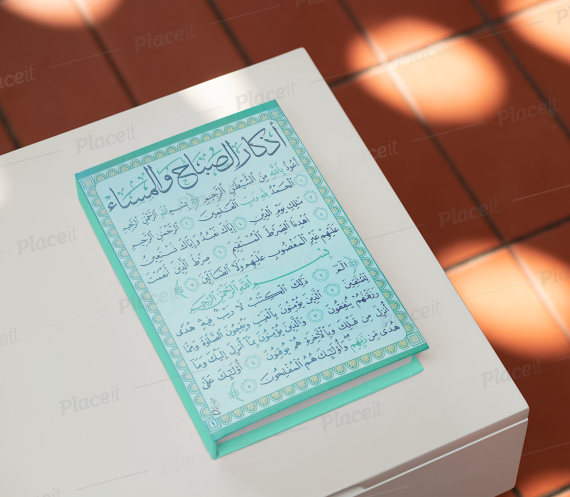 أذكار الصباح والمساء
أعوذ بالله من الشيطن الرجيم بسم الله الرحمن الرحيم
الحمد لله رب العلمين الرحمن الرحيم
ملك يوم الدين إياك نعبد وإياك نستعين
اهدنا الصرط المستقيم صرط الذين أنعمت
عليهم غير المغضوب عليهم ولا الضالين
بسم الله الرحمن الرحيم
الم ذلك الكتب لا ريب فيه هدى
للمتقين الذين يؤمنون بالغيب ويقيمون الصلوة ومما
رزقنهم ينفقون والذين يؤمنون بما أنزل إليك وما
أنزل من قبلك وبالآخرة هم يوقنون أولئك على
هدى من ربهم وأولئك هم المفلحون
Placeit
Placeit
Placeit
Placeit
Placeit
Placeit
Placeit
Placeit
Placeit